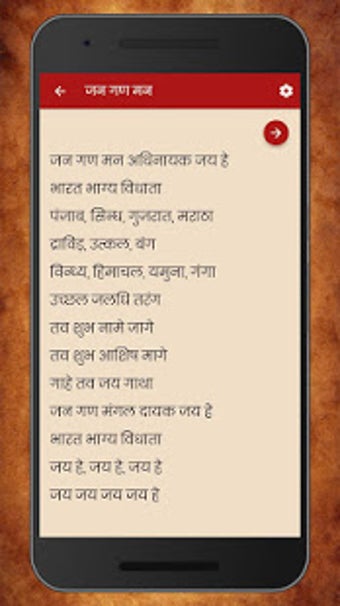 जन गण मन
जन गण मन अधिनायक जय हे
भारत भाग्य विधाता
पंजाब, सिन्ध, गुजरात, मराठा
द्राविड़, उत्कल, बंग
विन्ध्य, हिमाचल, यमुना, गंगा
उच्छल जलधि तरंग
तव शुभ नामे जागे
तव शुभ आशिष मागे
गाहे तव जय गाथा
जन गण मंगल दायक जय हे
भारत भाग्य विधाता
जय हे, जय हे, जय हे
जय जय जय जय हे